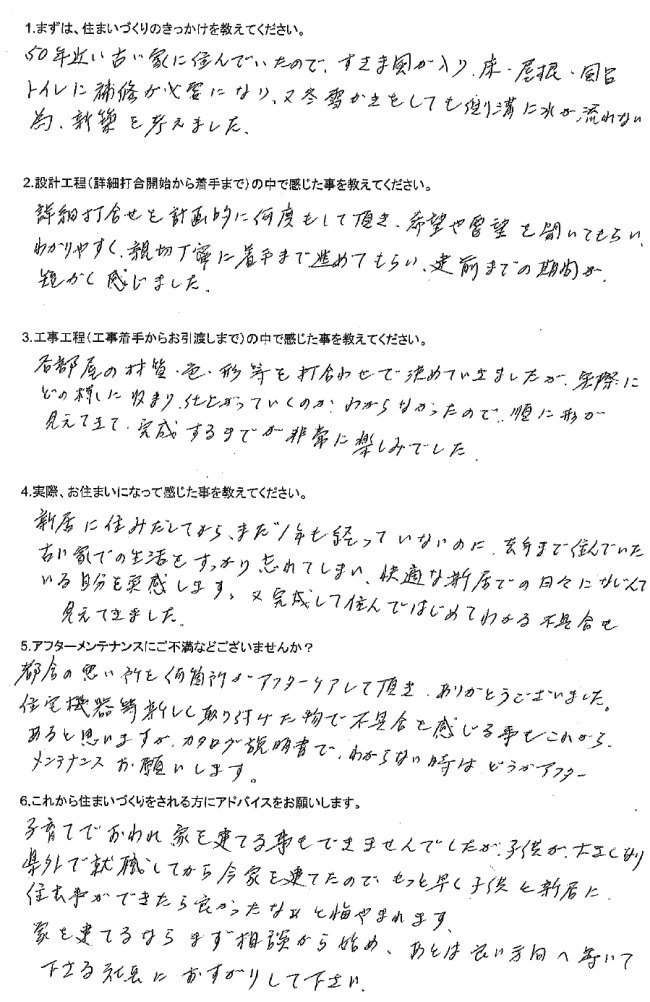 1.まずは、住まいづくりのきっかけを教えてください。
50年近い古い家に住んでいたので、すきま風が入り、床・屋根・風呂
トイレに補修が必要になり、又冬雪かきをしても側溝に水が流れない
為、新築を考えました。
2.設計工程（詳細打合開始から着手まで）の中で感じた事を教えてください。
詳細打合せを計画的に何度もして頂き、希望や要望を聞いてもらい、
わかりやすく、親切丁寧に着手まで進めてもらい、建前までの期間が
短かく感じました。
3.工事工程（工事着手からお引渡しまで）の中で感じた事を教えてください。
各部屋の材質・色・形等を打合わせで決めていきましたが、実際に
どの様に収まり、仕上がっていくのか、わからなかったので、順に形が
見えてきて、完成するまでが非常に楽しみでした。
4.実際、お住まいになって感じた事を教えてください。
新居に住みだしてから、まだ1年も経っていないのに、去年まで住んでいた
古い家での生活をすっかり忘れてしまい、快適な新居での日々になじんで
いる自分を実感します。又完成して住んではじめてわかる不具合も
見えてきました。
5.アフターメンテナンスにご不満などございませんか？
都合の悪い所を何箇所かアフターケアして頂き、ありがとうございました。
住宅機器等新しく取り付けた物で不具合を感じる事もこれから
あると思いますが、カタログ説明書で、わからない時はどうかアフター
メンテナンスお願いします。
6.これから住まいづくりをされる方にアドバイスをお願いします。
子育てでおわれ家を建てる事もできませんでしたが、子供が、大きくなり
県外で就職してから今家を建てたので、もっと早く子供と新居に
住む事ができたら良かったなぁと悔やまれます。
家を建てるならまず相談から始め、あとは良い方向へ導いて
下さる社長におすがりして下さい。